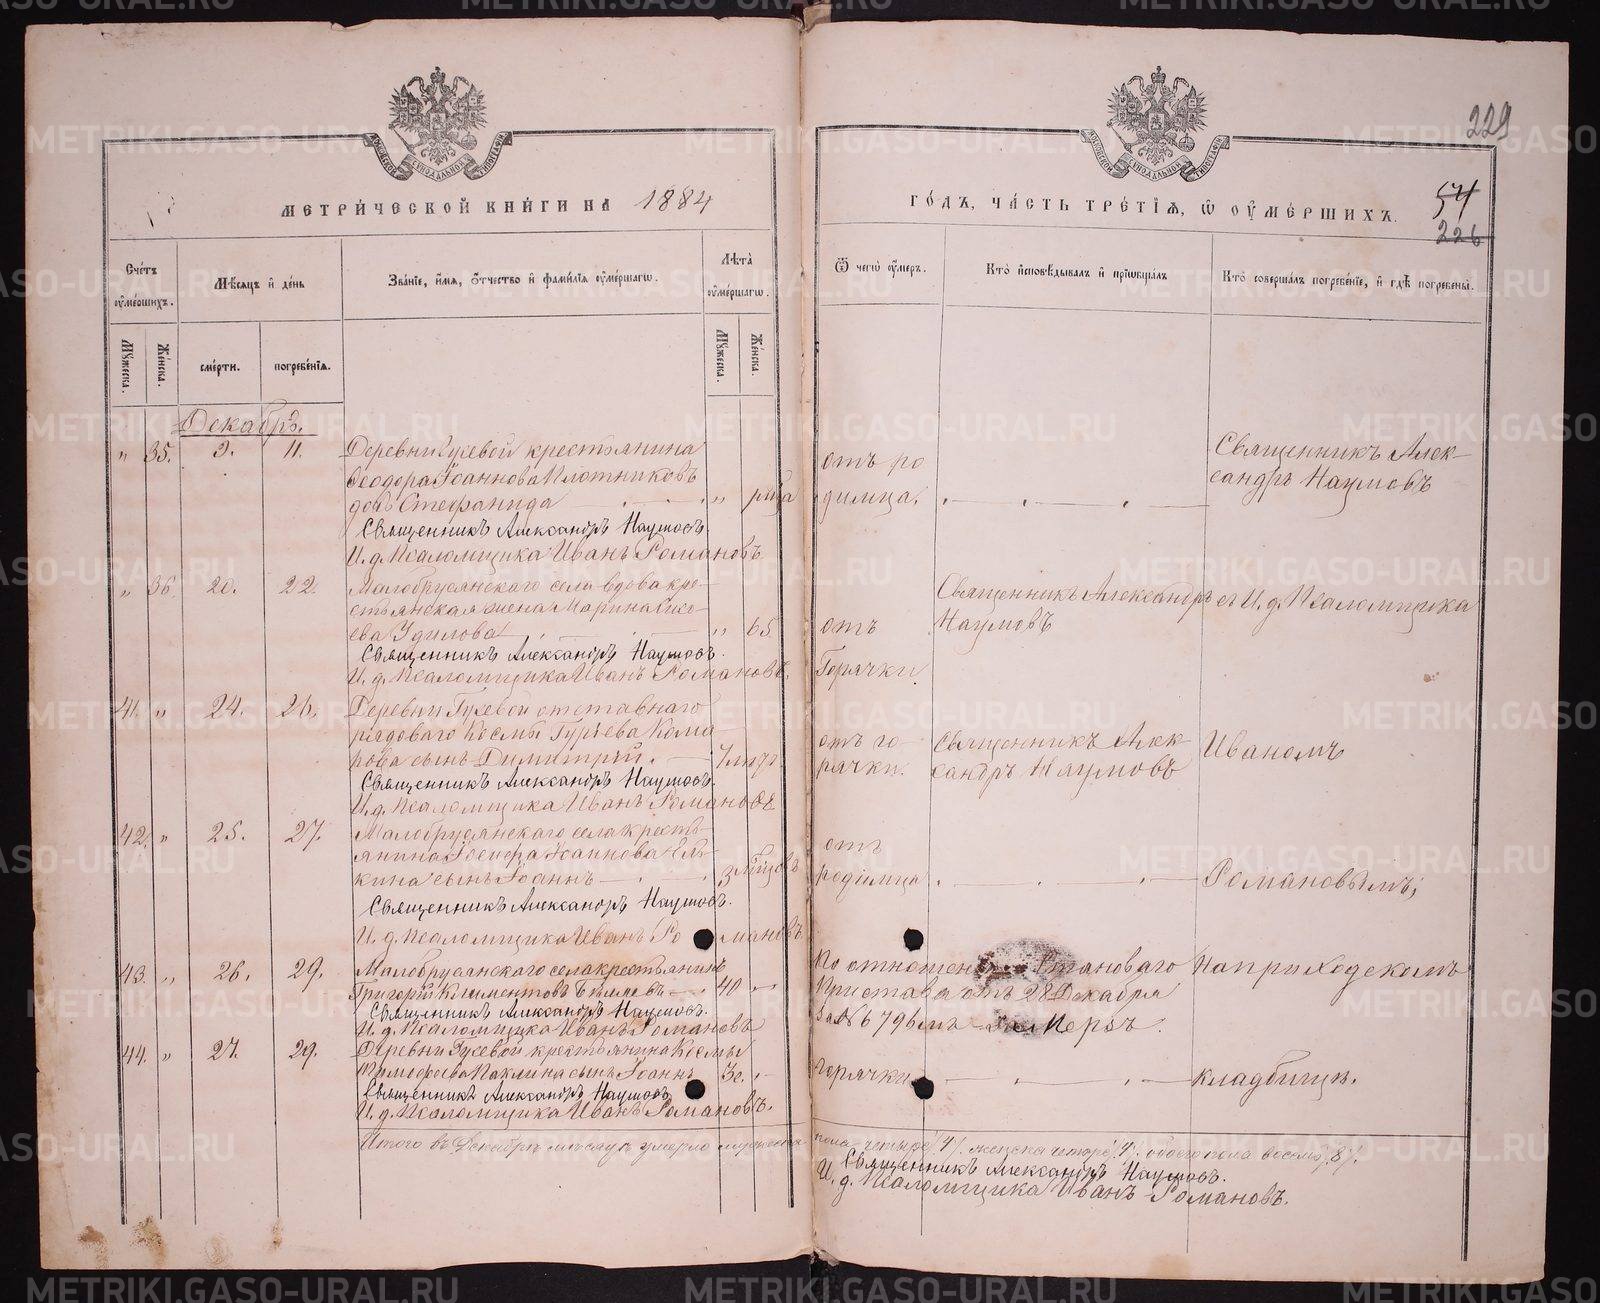 229
МЕТРИЧЕСКОЙ КНИГИ НА 1884
ГОДЪ, ЧАСТЬ ТРЕТІЯ, Ѡ ОУМЕРШИХЪ.
54
226
Счетъ оумершихъ.
Мѣсяцъ и день
Званіе, имя, отчество и фамилія оумершагѡ.
Лѣта оумершагѡ.
Ѿ чегѡ оумеръ.
Кто исповѣдывалъ и пріѡбщалъ
Кто совершалъ погребеніе, и гдѣ погребены.
Мужеска.
Женска.
смерти.
погребенія.
Мужеска.
Женска.
Декабрь.
" 35. 9. 11. Деревни Гусевой крестьянина
Ѳеодора Іоаннова Плотниковъ
дочь Стефанида " отъ ро
дилица.
Священникъ Алек-
сандръ Наумовъ
Священникъ Александръ Наумовъ.
И. д. Псаломщика Иванъ Романовъ
" 36. 20. 22. Малобрусянскаго села вдова кре-
стьянская жена Марина
ева Удилова " 65 отъ
Горячки
Священникъ Александръ
Наумовъ
съ И. д. Псаломщика
Священникъ Александръ Наумовъ.
И. д. Псаломщика Иванъ Романовъ.
41. " 24. 26. Деревни Гусевой отставнаго
рядоваго Космы Гурьева Кома
рова сынъ Димитрій. 7 отъ го-
рячки.
Священникъ Алек-
сандръ Наумовъ
Иваномъ
Священникъ Александръ Наумовъ.
И. д. Псаломщика Иванъ Романовъ
42. " 25. 27. Малобрусянскаго села кресть-
янина Іосифа Іоаннова Ел-
кина сынъ Іоаннъ 3 отъ
родимца
Романовымъ;
Священникъ Александръ Наумовъ.
И. д. Псаломщика Иванъ Романовъ
43. " 26. 29. Малобрусянскаго села крестьянинъ
Григорій Климентовъ 40 "
По отношенію Становаго
Пристава отъ 28 Декабря
за № 6796 Замерзъ.
На приходскомъ
Священникъ Александръ Наумовъ.
И. д. Псаломщика Иванъ Романовъ
44. " 27. 29. Деревни Гусевой крестьянина Космы
Тимофеева Паклина сынъ Іоаннъ "
горячки
кладбищи.
Священникъ Александръ Наумовъ
И. д. Псаломщика Иванъ Романовъ.
Итого въ Декабрѣ мѣсяцѣ умерло мужеска пола четыре /4/. женска четыре /4/. обоего пола восемь /8/.
Священникъ Александръ Наумовъ.
И. д. Псаломщика Иванъ Романовъ.
METRIKI.GASO-URAL.RU